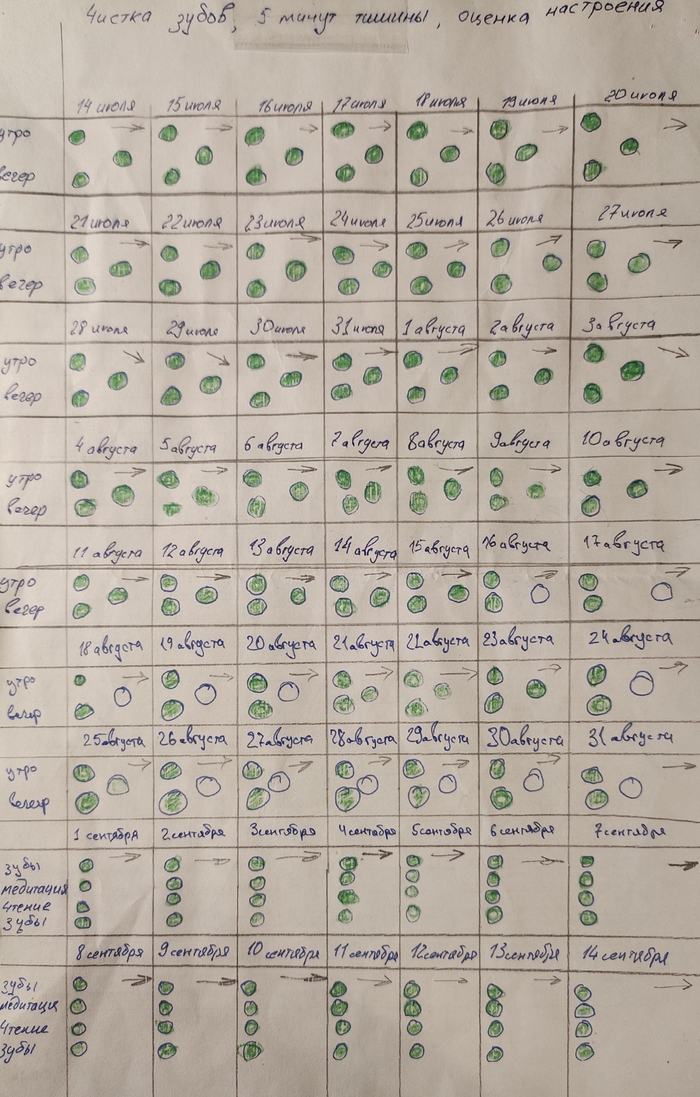 Чистка зубов, 5 минут тишины, оценка настроения
14 июля 15 июля 16 июля 17 июля 18 июля 19 июля 20 июля
утро
вечер
21 июля 22 июля 23 июля 24 июля 25 июля 26 июля 27 июля
утро
вечер
28 июля 29 июля 30 июля 31 июля 1 августа 2 августа 3 августа
утро
вечер
4 августа 5 августа 6 августа 7 августа 8 августа 9 августа 10 августа
утро
вечер
11 августа 12 августа 13 августа 14 августа 15 августа 16 августа 17 августа
утро
вечер
18 августа 19 августа 20 августа 21 августа 22 августа 23 августа 24 августа
утро
вечер
25 августа 26 августа 27 августа 28 августа 29 августа 30 августа 31 августа
утро
вечер
1 сентября 2 сентября 3 сентября 4 сентября 5 сентября 6 сентября 7 сентября
зубы
медитация
чтение
зубы
8 сентября 9 сентября 10 сентября 11 сентября 12 сентября 13 сентября 14 сентября
зубы
медитация
чтение
зубы